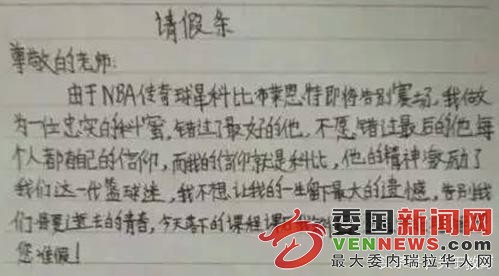 请假条
尊敬的老师:
由于NBA传奇球星科比布莱恩特即将告别赛场,我做
为一位忠实的科蜜,错过了最好的他,不愿错过最后的他,每
个人都有自己的信仰,而我的信仰就是科比,他的精神激励了
我们这一代篮球迷,我不想让我的一生留下最大的遗憾,告别我
们逝去的青春,今天落下的课程课后我
您准假!
委国新闻网
VENNEWS.COM
最大委内瑞拉华人网